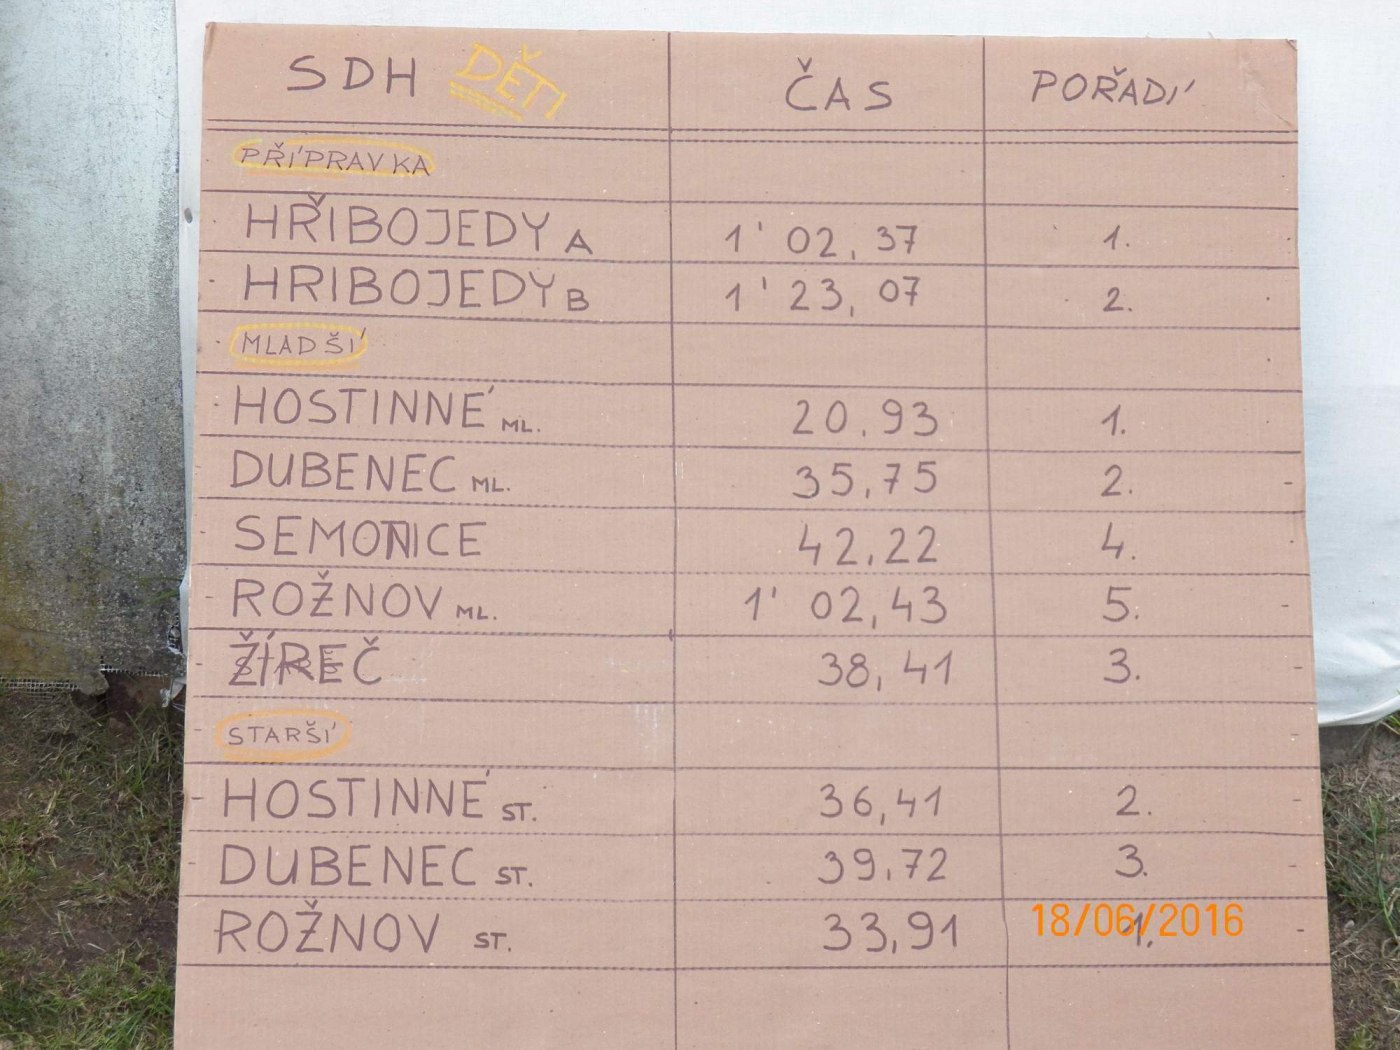 SDH DĚTI ČAS POŘADÍ
PŘÍPRAVKA
HŘIBOJEDY A 1' 02,37 1.
HRIBOJEDY B 1' 23,07 2.
MLADŠÍ
HOSTINNÉ ML. 20,93 1.
DUBENEC ML. 35,75 2.
SEMONICE 42,22 4.
ROŽNOV ML. 1' 02,43 5.
ŽÍREČ 38,41 3.
STARŠÍ
HOSTINNÉ ST. 36,41 2.
DUBENEC ST. 39,72 3.
ROŽNOV ST. 33,91 1.
18/06/2016